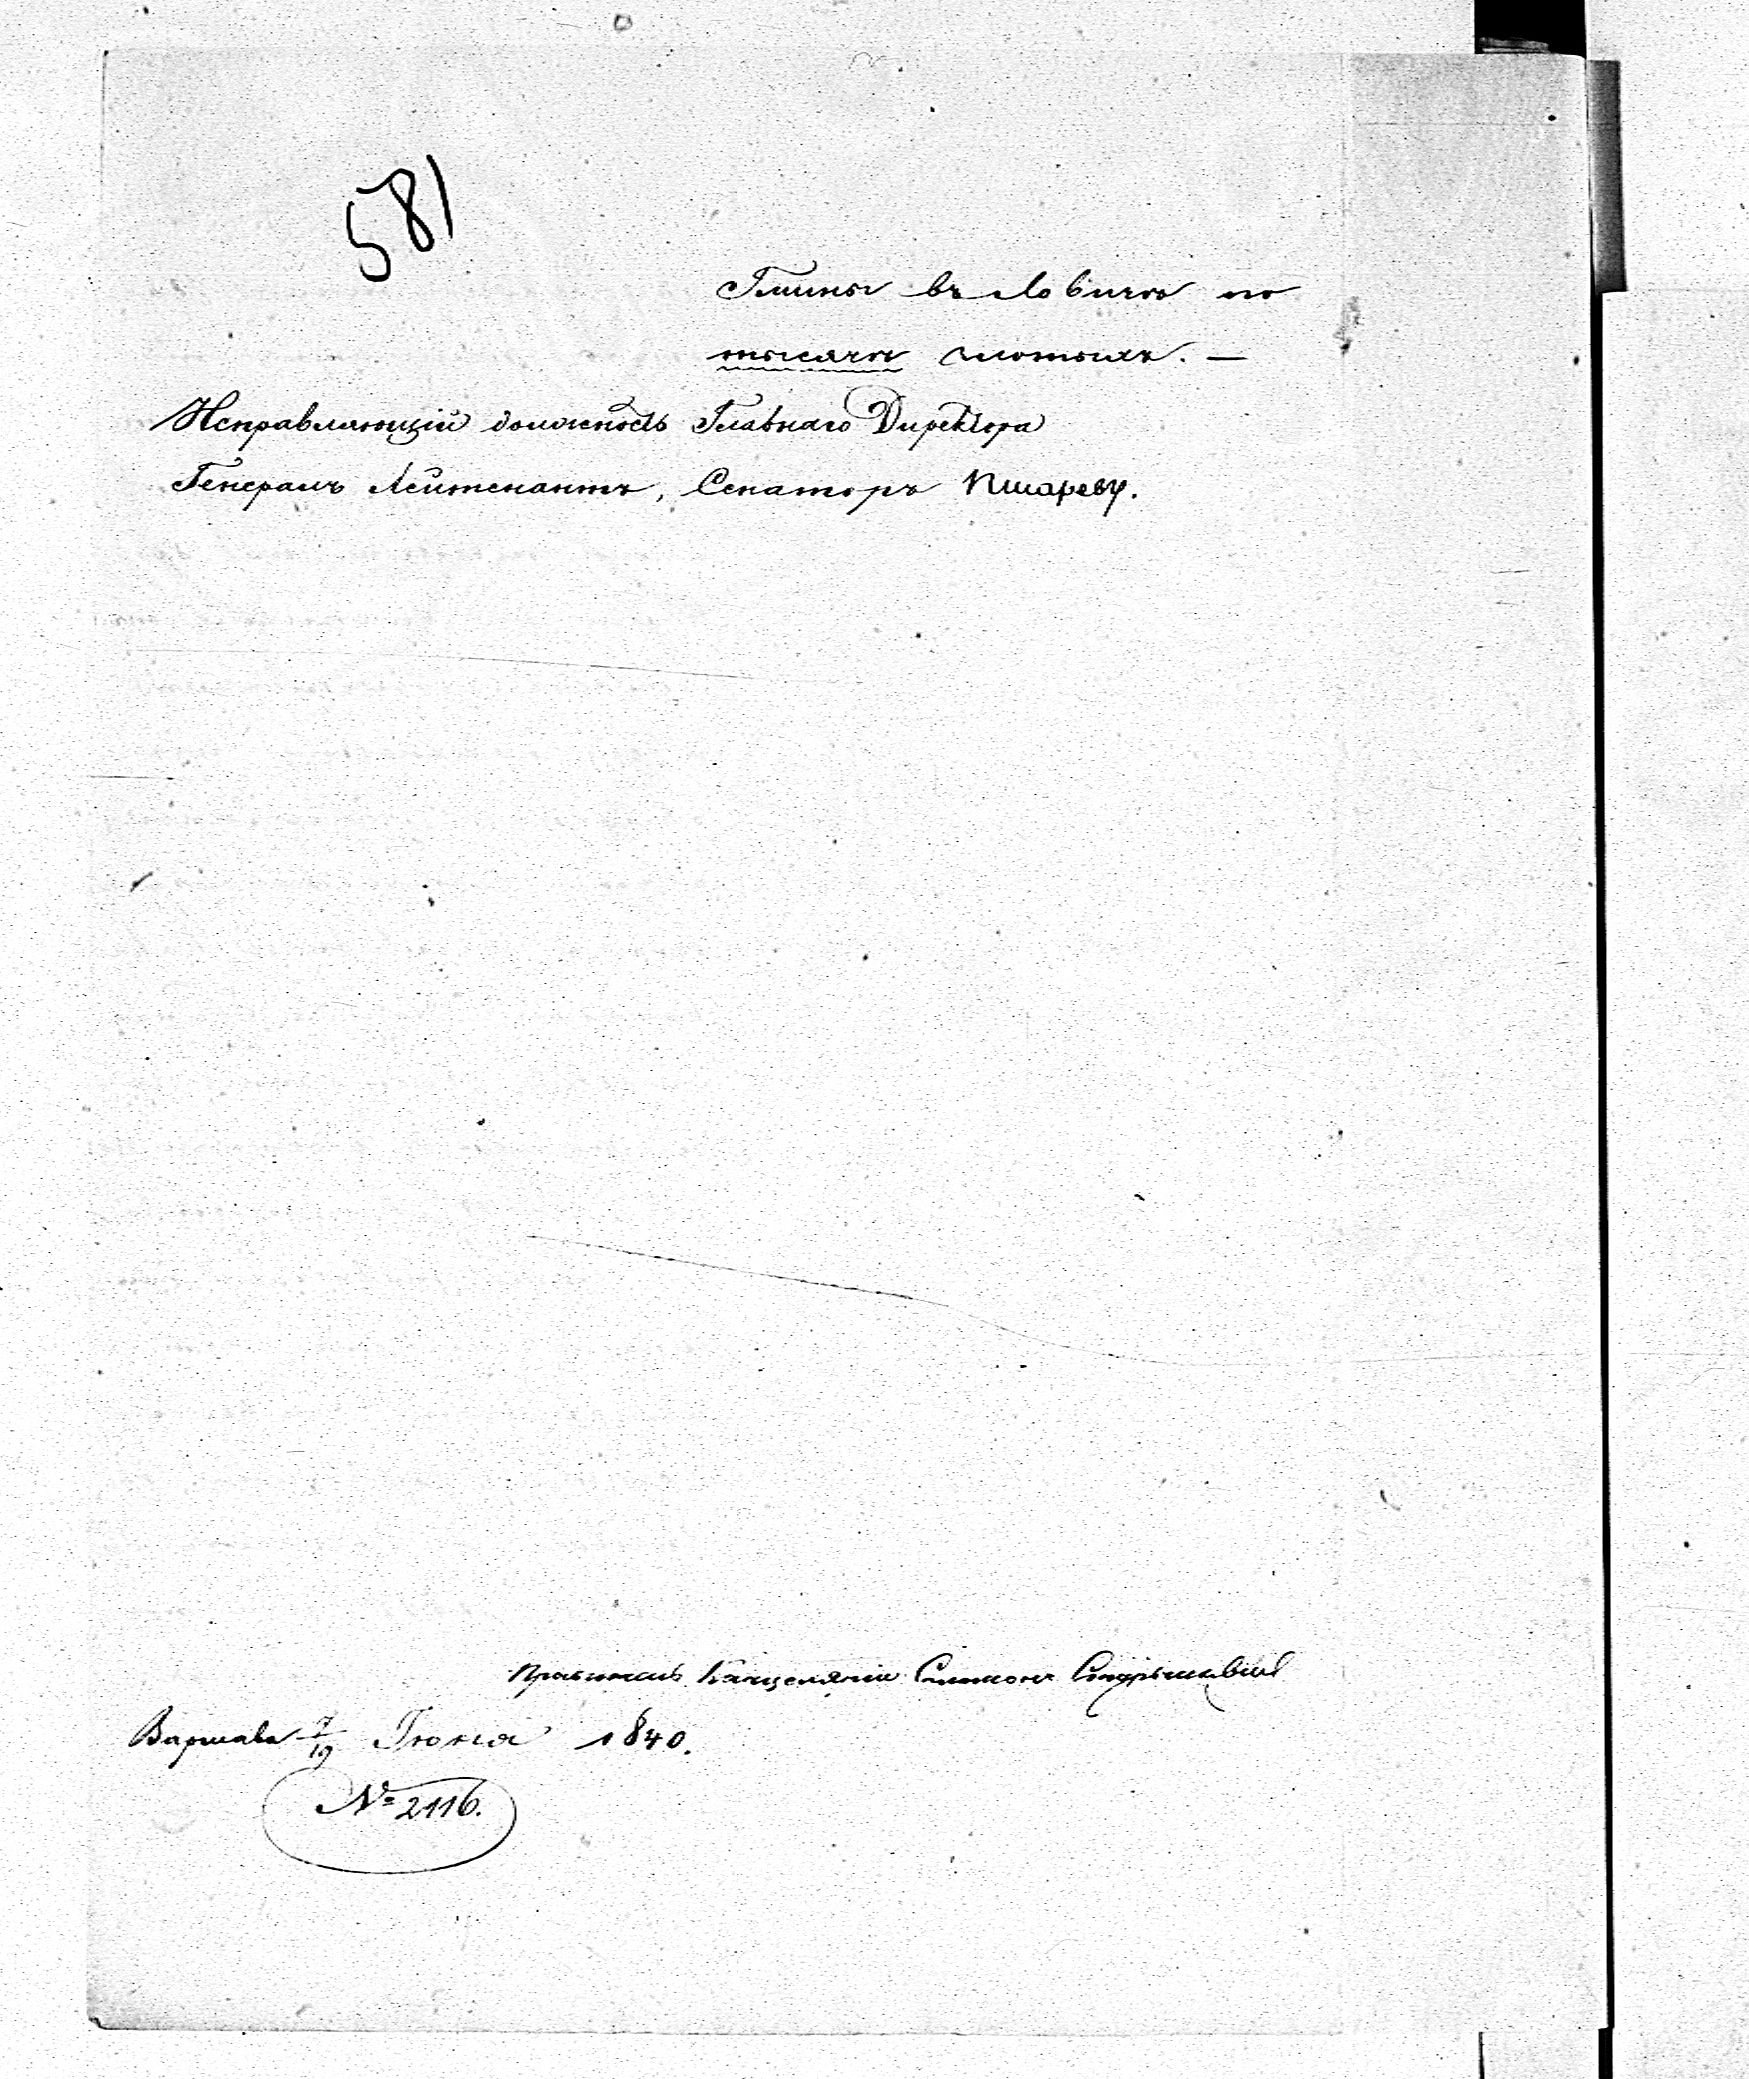 581
Гмины въ Ловичѣ по
тысячи злотыхъ. —
Исправляющій должность Главнаго Директора
Генералъ Лейтенантъ, Сенаторъ Писаревъ.
Правитель Канцеляріи Симонъ
Варшава 7/19 Іюня 1840.
№ 2116.